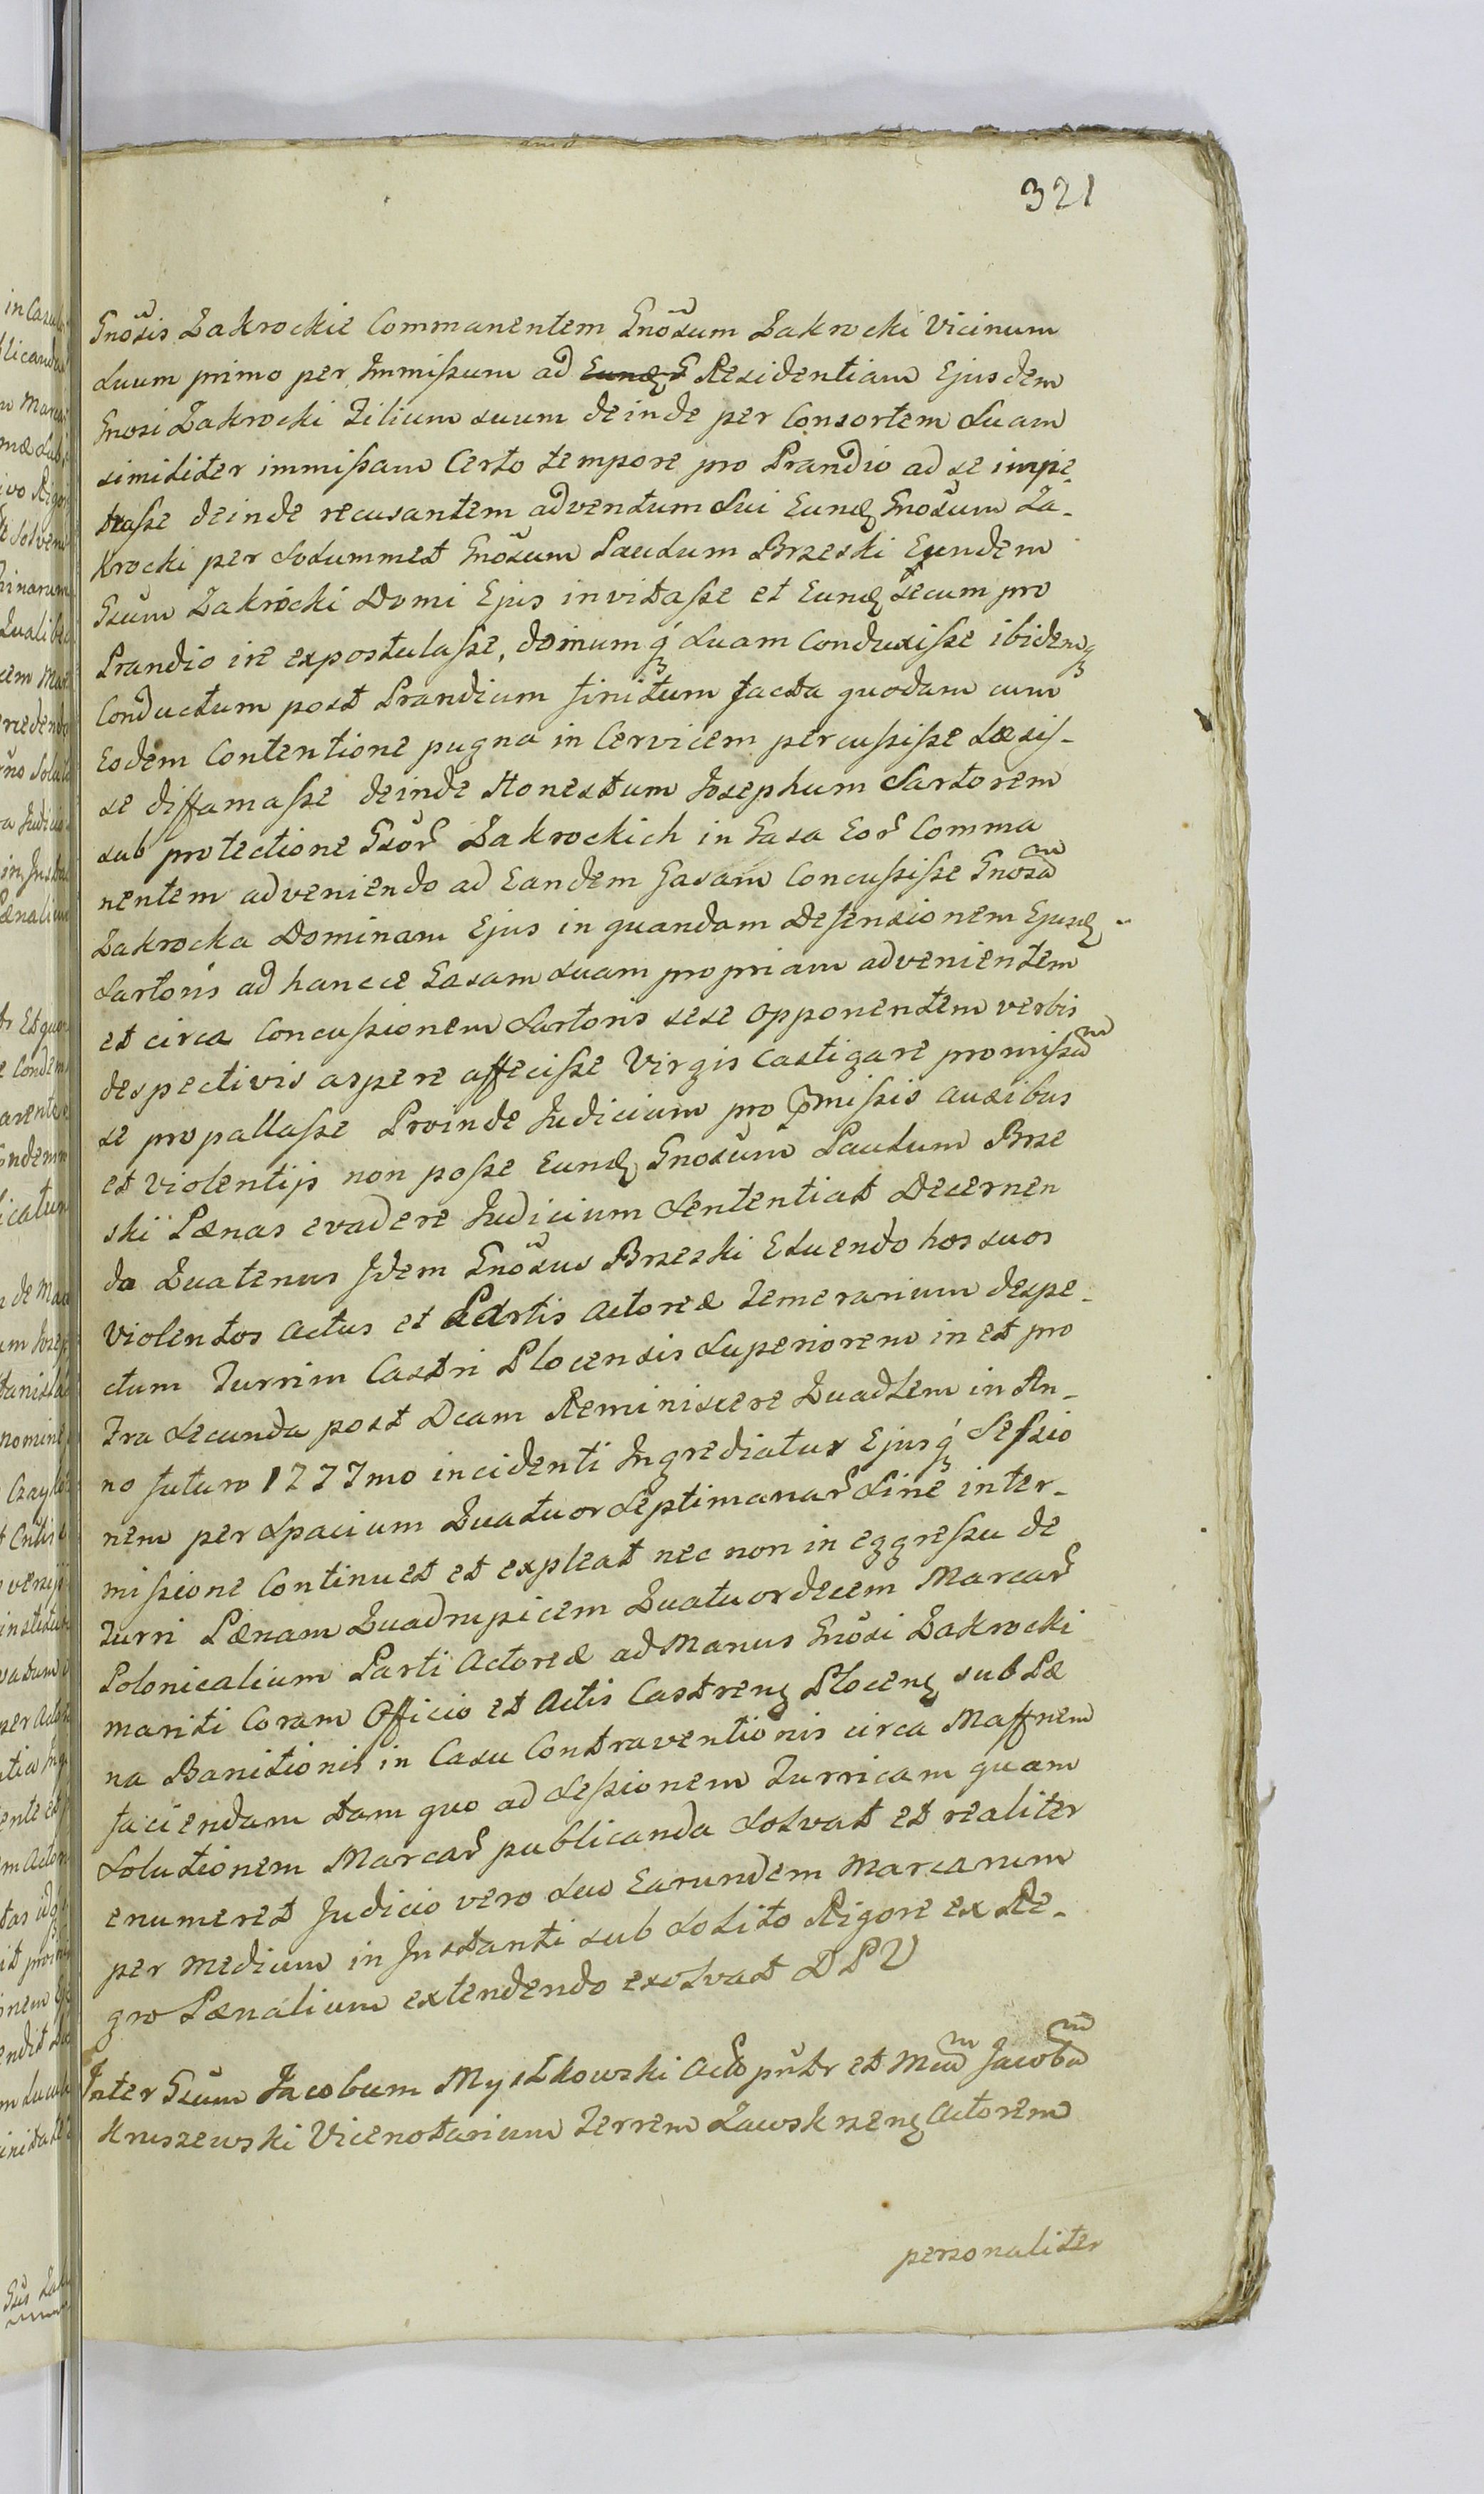 321
Gnõsis Zakrockie Commanentem Gnõsum Zakrocki Vicinum
Suum primo per Immissum ad Eund G Residentiam Ejusdem
Gnosi Zakrocki Filium suum deinde per Consortem Suam
similiter immissam Certo tempore pro Prandio ad se impe-
trasse deinde recusantem adventum Sui Eundq Gnosum Za-
krocki per Solummet Gnosum Paulum Brzeski Eundem
Gsum Zakrocki Domi Ejus invitasse et Eundq secum pro
Prandio ire expostulasse, domumq Suam Conduxisse ibidemq
Conductum post Prandium finitum facta quodam cum
Eodem Contentione pugna in Cervicem percussisse Læsis-
se diffamasse deinde Honestum Josephum Sartorem
sub protectione Gsor Zakrockich in Casa Eor Comma
nentem adveniendo ad Eandem Casam Concussisse Gnosam
Zakrocka Dominam Ejus in quandam Defensionem Ejusdq
Sartoris ad hancce Casam Suam propriam advenientem
et circa Concussionem Sartoris sese opponentem verbis
despectivis aspere affecisse Virgis Castigare promissum
se propallasse Proinde Judicium pro pmissis ausibus
et Violentijs non posse Eundq Gnosum Paulum Brze
ski Pænas evadere Judicium Sententiat Decernen
do Quatenus Idem Gnõsus Brzeski Eluendo hos suos
Violentos Actus et Partis Actoreæ Temerarium despe-
ctum Turrim Castri Plocensis Superiorem in et pro
Fra Secunda post Dcam Reminiscere Quadlem in An-
no futuro 1777mo incidenti Ingrediatur Ejusq Sessio
nem per Spacium Quatuor Septimanar Sine inter-
missione Continuet et expleat nec non in eggressu de
Turri Pænam Quadrupicem Quatuordecem Marcar
Polonicalium Parti Actoreæ ad Manus Gnosi Zakrocki
mariti Coram Officio et Actis Castrenq Plocenq sub Pæ
na Banitionis in Casu Contraventionis circa Maffnem
faciendam tam quo ad Sessionem Turricam quam
Solutionem Marcar publicanda Solvat et realiter
enumeret Judicio vero Suo Earundem Marcarum
per medium in Instanti sub Solito Rigore ex Re-
gro Pænalium extendendo exolvat DPV
Inter Gsum Jacobum Myslkowski Act pñtr et Mcum Jacobum
Kruszewski Vicenotarium Terrem Zawskrzenq Actorem
personaliter